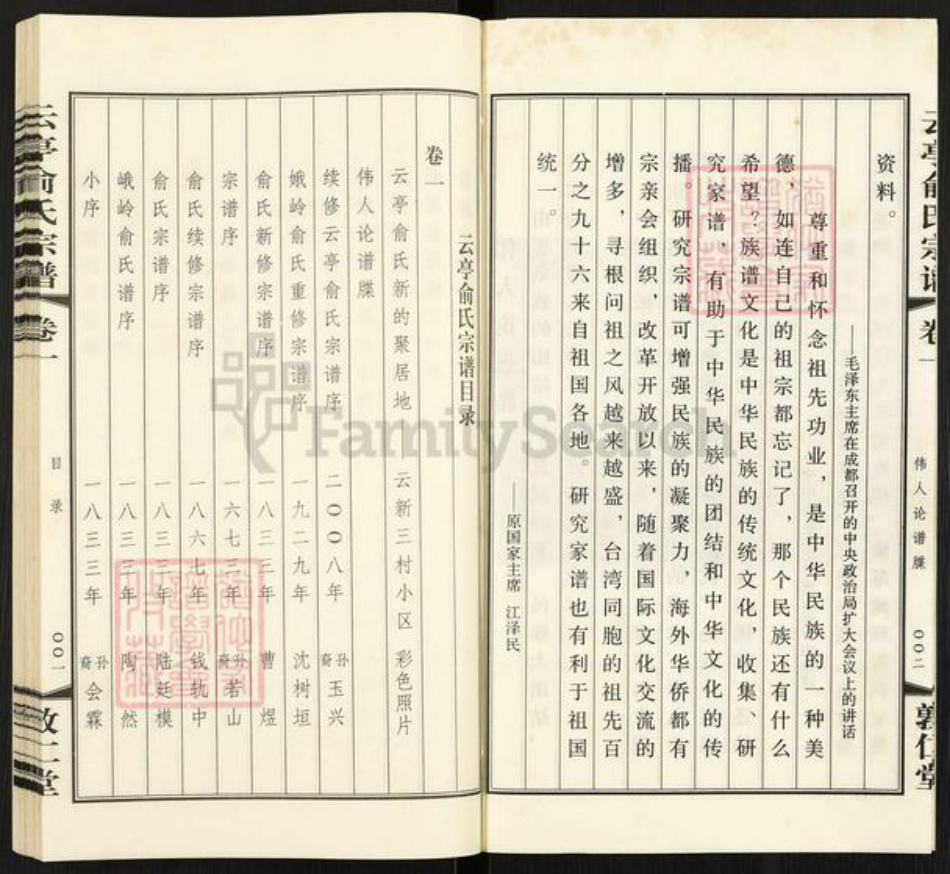 资料。
——毛泽东主席在成都召开的中央政治局扩大会议上的讲话
尊重和怀念祖先功业，是中华民族的一种美
德，如连自己的祖宗都忘记了，那个民族还有什么
希望？族谱文化是中华民族的传统文化，收集、研
究家谱，有助于中华民族的团结和中华文化的传
播。研究宗谱可增强民族的凝聚力，海外华侨都有
宗亲会组织，改革开放以来，随着国际文化交流的
增多，寻根问祖之风越来越盛，台湾同胞的祖先百
分之九十六来自祖国各地。研究家谱也有利于祖国
统一。
——原国家主席 江泽民
云亭俞氏宗谱 卷一
伟人论谱牒
〇〇二
敦仁堂
云亭俞氏宗谱目录
卷一
云亭俞氏新的聚居地——云新三村小区 彩色照片
伟人论谱牒
续修云亭俞氏宗谱序 二〇〇八年 裔孙玉兴
峨岭俞氏重修宗谱序 一九二九年 沈树垣
俞氏新修宗谱序 一八三三年 曹煜
宗谱序 一六七三年 裔孙若山
俞氏续修宗谱序 一八六七年 钱轨中
俞氏宗谱序 一八三三年 陆廷模
峨岭俞氏谱序 一八三三年 陶然
小序 一八三三年 裔孙会霖
云亭俞氏宗谱 卷一
目录
〇〇一
敦仁堂
FamilySearch